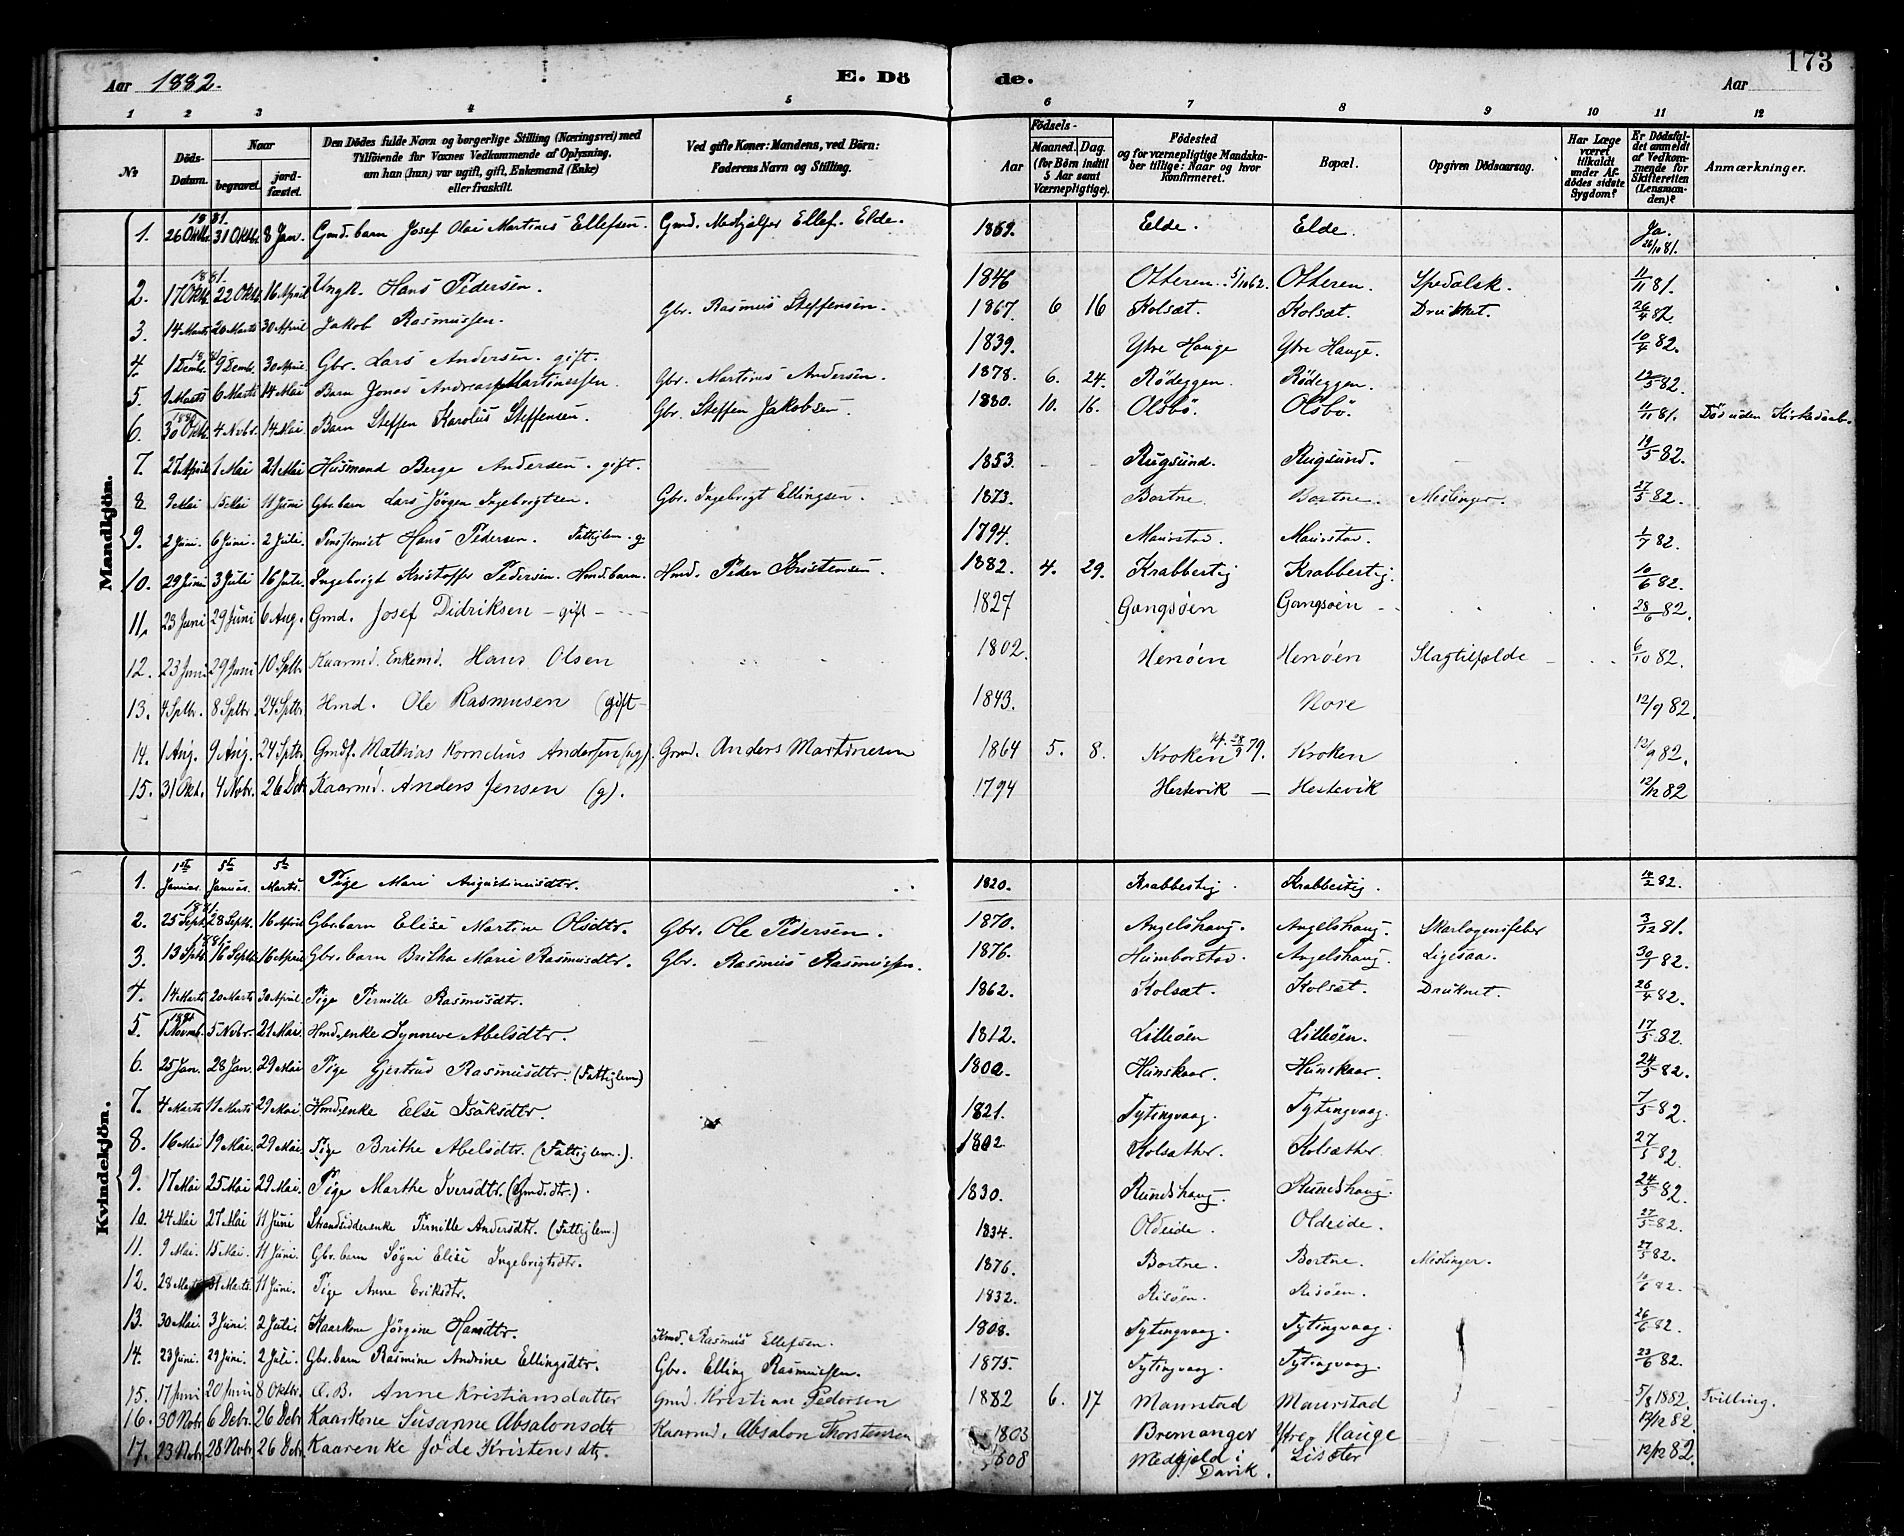 173
Aar 1882. E. Dö de. Aar
1 2 3 4 5 6 7 8 9 10 11 12
№ Döds-Datum. Naar begravet. jordfæstet. Den Dödes fulde Navn og borgerlige Stilling (Næringsvei) med Tilföiende for Voxnes Vedkommende af Oplysning, om han (hun) var ugift, gift, Enkemand (Enke) eller fraskilt. Ved gifte Koner: Mandens, ved Börn: Faderens Navn og Stilling. Födsels- Aar Maaned. Dag. (for Börn indtil 5 Aar samt Værnepligtige). Födested og for værnepligtige Mandskaber tillige: Naar og hvor konfirmeret. Bopæl. Opgiven Dödsaarsag. Har Læge været tilkaldt under Afdödes sidste Sygdom? Er Dödsfaldet anmeldt af Vedkommende for Skifteretten (Lensmanden)? Anmærkninger.
Mandkjön.
1. 1881. 26 Oktb. 31 Oktb. 8 Jan. Gmd. barn Josef Olai Martinus Ellefsen. Gmd. Medhjelper Ellef. Elde. 1869. Elde. Elde. Ja. 26/10 81.
2. 1881. 17 Oktb. 22 Oktb. 16 April Ungk. Hans Pedersen. 1846 Otteren. 5/10 62. Otteren. Spedalsk. 11/11 81.
3. 14 Marts 20 Marts 30 April Jakob Rasmussen. Gbr. Rasmus Steffensen. 1867. 6 16 Kolsæt. Kolsæt. Druknet. 26/4 82.
4. 1881. 1 Dembr. 9 Dembr. 30 April Gbr. Lars Andersen. gift. 1839. Ytre Hauge Ytre Hauge. 10/4 82.
5. 1 Marts 6 Marts 14 Mai Barn Jonas Andreas Martinussen. Gbr. Martinus Andersen. 1878. 6. 24. Rödeggen. Rödeggen. 12/5 82.
6. 30 Oktb. 4 Novbr. 14 Mai Barn Steffen Karolus Steffensen. Gbr. Steffen Jakobsen. 1880. 10. 16. Olsbö. Olsbö. 11/11 81. Död uden Kirkedaab.
7. 27 April 1 Mai 21 Mai Husmand Berge Andersen. gift. 1853. Rugsund. Rugsund. 19/5 82.
8 9 Mai 15 Mai 11 Juni Gbr. barn Lars Jörgen Ingebrigtsen. Gbr. Ingebrigt Ellingsen. 1873. Bortne. Bortne. Meslinger. 27/5 82.
9. 2 Juni. 6 Juni. 2 Juli. Pensionist Hans Pedersen. Fattiglem. g. 1794. Maurstad. Maurstad. 1/7 82.
10. 29 Juni 3 Juli 16 Juli. Ingebrigt Kristoffer Pedersen. Hmd. barn. Hmd. Peder Kristensen. 1882. 4. 29. Krabbestig Krabbestig. 10/6 82.
11. 23 Juni 29 Juni 6 Aug. Gmd. Josef Didriksen - gift - 1827 Gangsöen Gangsöen 28/6 82.
12. 23 Juni 29 Juni 10 Sptb. Kaarmd. Enkemd. Hans Olsen 1802. Henöen Henöen Slagtilfælde 6/10 82.
13. 4 Sptbr. 8 Sptbr 24 Sptbr Hmd. Ole Rasmusen (gift 1843. Nore 12/9 82.
14. 1 Aug. 9 Aug. 24 Sptbr. Gmdf. Mathias Kornelius Andersen (ug). Gmd. Anders Martinesen 1864 5. 8. Kroken kf. 28/9 79. Kroken 12/9 82.
15. 31 Okt. 4 Nobr. 26 Dcbr Kaarmd. Anders Jensen (g). 1794 Hestevik Hestevik 12/12 82
Kvindekjön.
1. 1st Januar. 5t Januar. 5t Marts. Pige Mari Augustinusdtr. 1820. Krabbestig. Krabbestig. 14/2 82.
2. 1881. 25 Septb. 28 Septb. 16 April Gbr. barn Elise Martine Olsdtr. Gbr. Ole Pedersen. 1870. Angelshaug. Angelshaug. Skarlagensfeber 3/12 81.
3. 1881. 13 Sptb. 16 Septb. 16 April Gbr. barn Britha Marie Rasmusdtr. Gbr. Rasmus Rasmussen. 1876. Humborstad. Angelshaug. Ligesaa. 82.
4. 14 Marts 20 Marts 30 April. Pige Pernille Rasmusdtr. 1862. Kolsæt. Kolsæt. Druknet. 26/4 82.
5. 1881 1 Novmb. 5 Nobr. 21 Mai. Hmdsenke Synneve Abelsdtr. 1812. Lillöen Lillöen. 17/5 82.
6. 25 Jan. 28 Jan. 29 Mai Pige Gjertrud Rasmusdtr. (Fattiglem) 1802. Hunskaar. Hunskaar. 24/5 82.
7. 4 Marts 11 Marts 29 Mai. Hmdsenke Else Isaksdtr. 1821. Tytingvaag. Tytingvaag. 7/5 82.
8. 16 Mai 19 Mai. 29 Mai. Pige Brithe Abelsdtr. (Fattiglem.). 1802. Kolsæther. Kolsæther. 27/5 82.
9. 17 Mai 25 Mai 29 Mai. Pige Marthe Iversdtr. (Gmdsdtr.). 1830. Rundshaug. Rundshaug. 24/5 82.
10. 24 Mai 27 Mai 11 Juni Strandsidderenke Pernille Andersdtr. (Fattiglem) 1834. Oldeide. Oldeide. 27/5 82.
11. 9 Mai. 15 Mai. 11 Juni. Gbr. barn Søgni Elise Ingebrigtsdtr. 1876. Bortne. Bortne. Meslinger. 27/5 82.
12. 28 Marts 31 Marts. 11 Juni. Pige Anne Eriksdtr. 1832. Risöen. Risöen. 10/6 82.
13. 30 Mai. 3 Juni. 2 Juli. Kaarkone Jörgine Hansdtr. Kmd. Rasmus Ellefsen. 1808. Tytingvaag. Tytingvaag. 26/6 82.
14. 23 Juni. 29 Juni. 2 Juli. Gbr. barn Rasmine Andrine Ellingsdtr. Gbr. Elling Rasmussen. 1875. Tytingvaag. Tytingvaag. 23/6 82.
15. 17 Juni 20 Juni 8 Oktbr. Æ. B. Anne Kristiansdatter Gmd Kristian Pedersen 1882 6. 17 Maurstad Maurstad 5/8 1882. Tvilling.
16. 30 Nobr. 6 Debr. 26 Debr Kaarkone Susanne Absalonsdtr Kaarmd. Absalon Thorstensen 1803 Bremanger Ytre Hauge 12/12 82
17. 23 Nobr 28 Nobr. 26 Debr. Kaarenke Jöde Kristensdtr. 1808 Medgjeld i Davik. Lisæter 12/12 82.